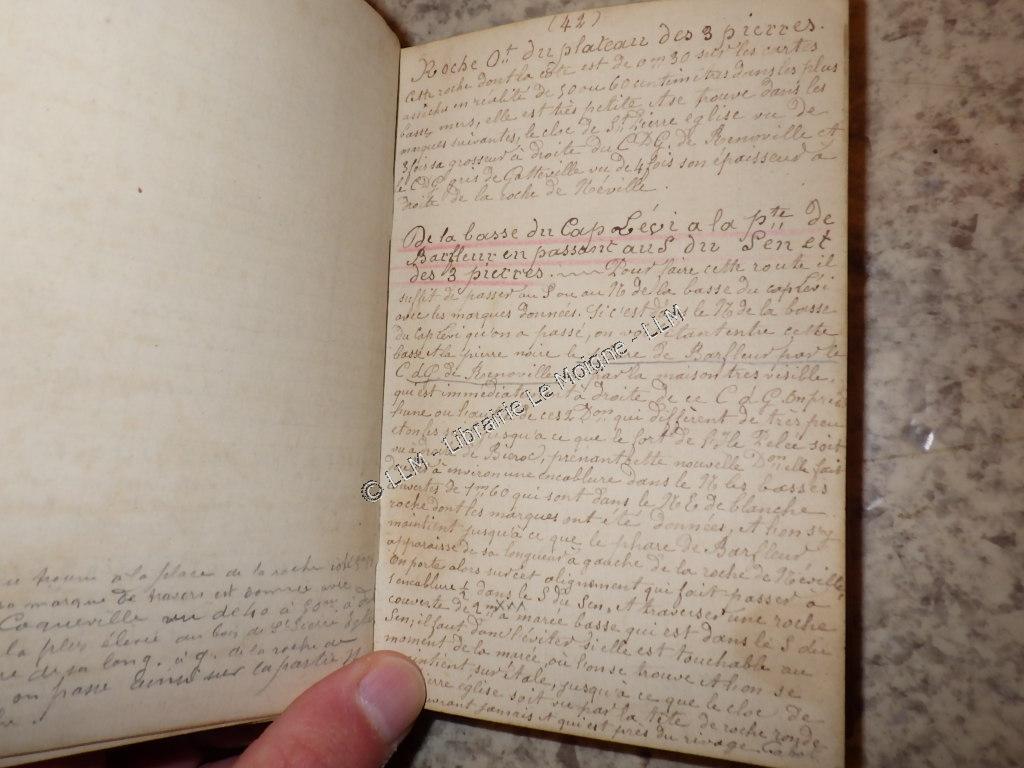 (42)
Roche O.t du plateau des 3 pierres.
Cette roche dont la côte est de 0m30 sur les cartes
assèche en réalité de 50 ou 60 centimètres dans les plus
basses mers, elle est très petite et se trouve dans les
marques suivantes, le cloc de St Pierre église vu de
3 fois sa grosseur à droite du C D G. de Renoville et
le C D G gris de Gatteville vu de 4 fois son épaisseur à
droite de la roche de Néville.
De la basse du Cap Lévi a la pte de
Barfleur en passant au S du Sen et
des 3 pierres. Pour faire cette route il
suffit de passer au S ou au N de la basse du cap Lévi
avec les marques données. Si c'est dans le N de la basse
du Cap Lévi qu'on a passé, on entre cette
basse et la pierre noire le phare de Barfleur par le
C d G de Renoville par la maison très visible,
qui est immédiatement à droite de ce C d G. On prend
l'une ou l'autre de ces 2 Don qui diffèrent de très peu
et on les suit jusqu'à ce que le fort de soit
vu à droite de prenant cette nouvelle Don elle fait
à environ une encablure dans le N les basses
couvertes de 1m60 qui sont dans le N E de blanche
roche dont les marques ont été données, et l'on s'y
maintient jusqu'à ce que le phare de Barfleur
apparaisse de sa longueur à gauche de la roche de Néville,
On porte alors sur cet alignement qui fait passer à
1 encablure ½ dans le S du Sen, et traverser une roche
couverte de à marée basse qui est dans le S du
Sen; il faut donc l'éviter si elle est touchable au
moment de la marée, où l'on se trouve et l'on se
maintient sur étale, jusqu'à ce que le cloc de
Pierre église soit vu par la tête de roche ronde
ouvrant jamais et qui est près du rivage
trouve à la place de la roche
marque de travers est donnée avec
Coqueville vu de 40 à 50m à
la plus élevée au bois de St Pierre Eglise
de sa long. à g. de la roche de
on passe ainsi sur sa partie N
© LLM - Librairie Le Moigne - LLM